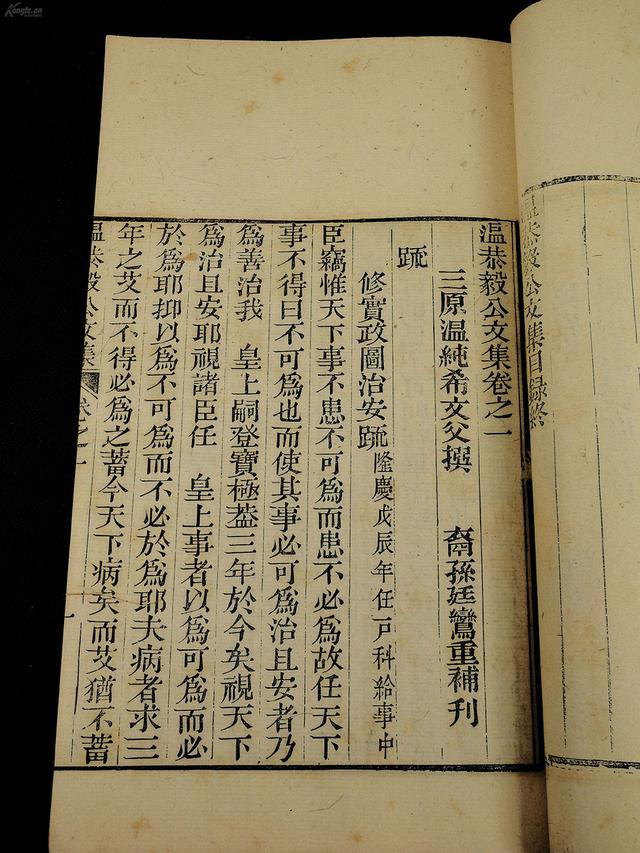 溫恭毅公文集目錄終
溫恭毅公文集卷之一
三原溫純希文父撰 裔孫廷鸞重補刊
䟽
修實政圖治安䟽隆慶戊辰年任戸科給事中
臣竊惟天下事不患不可爲而患不必爲故任天下
事不得曰不可爲也而使其事必可爲治且安者乃
爲善治我 皇上嗣登寶極葢三年於今矣視天下
爲治且安耶視諸臣任 皇上事者以爲可爲而必
於爲耶抑以爲不可爲而不必於爲耶夫病者求三
年之艾而不得必爲之蓄今天下病矣而艾猶不蓄
溫恭毅公文集 卷之一 一
Kongfz.cn